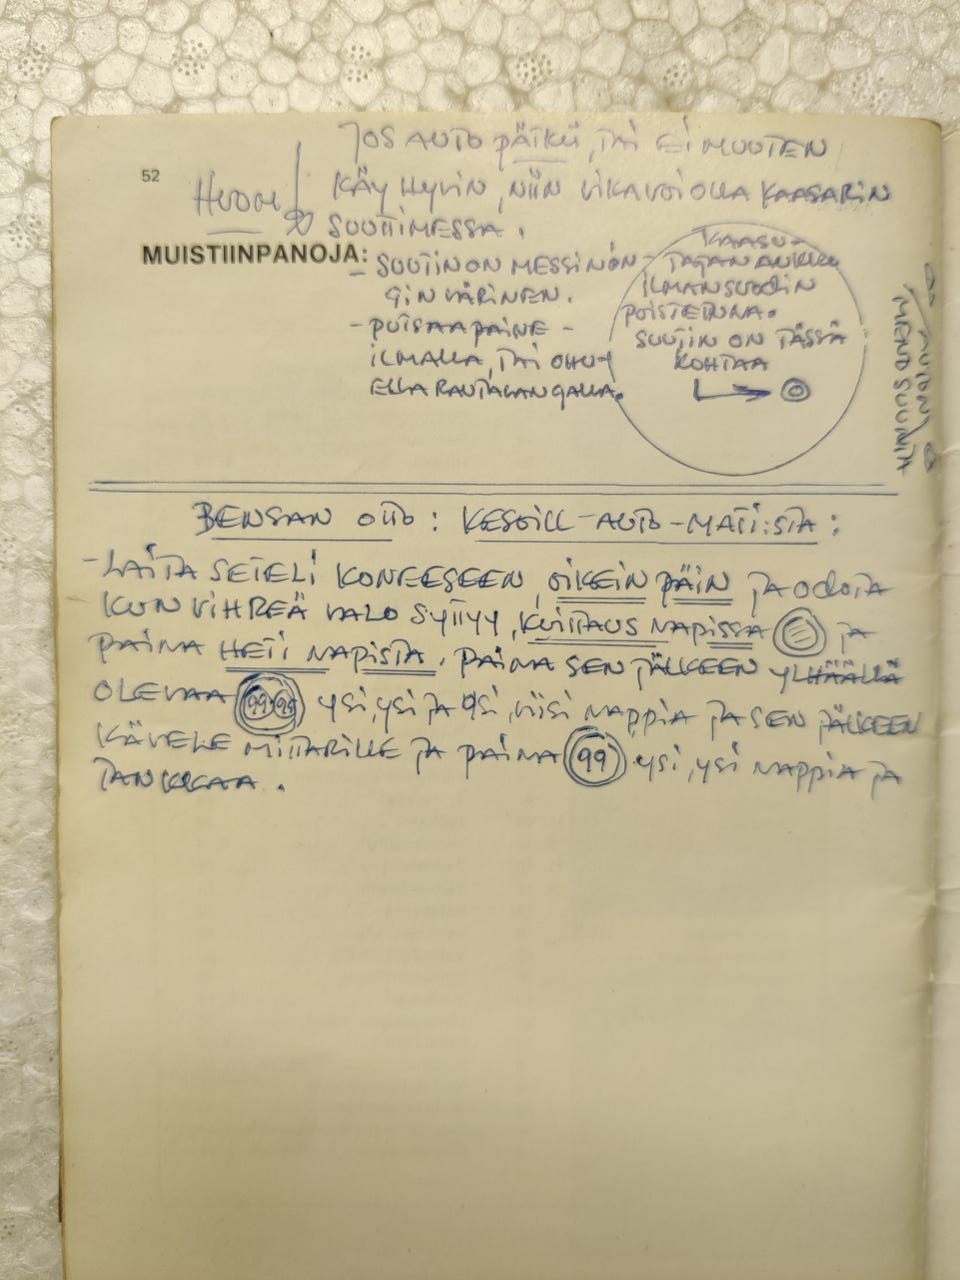 52
JOS AUTO PÄTKII, TAI EI MUUTEN
HUOM! KÄY HYVIN, NIIN VIKA VOI OLLA KAASARIN
SUUTTIMESSA.
MUISTIINPANOJA:
- SUUTIN ON MESSINON-
GIN VÄRINEN.
- PUTSAA PAINE-
ILMALLA, TAI OHU-
ELLA RAUTALANGALLA.
KAASU-
TAJAN AUKKO
ILMANSUODIN
POISTETTUNA.
SUUTIN ON TÄSSÄ
KOHTAA
AUTON
MENOSUUNTA
BENSAN OTTO: KESOILL-AUTO-MATI:STA:
- LAITA SETELI KONEESEEN, OIKEIN PÄIN JA ODOTA
KUN VIHREÄ VALO SYTTYY, KUITTAUS NAPISSA JA
PAINA HETI NAPISTA. PAINA SEN JÄLKEEN YLHÄÄLLÄ
OLEVAA 99 95 YSI, YSI JA YSI, VIISI NAPPIA JA SEN JÄLKEEN
KÄVELE MITTARILLE JA PAINA 99 YSI, YSI NAPPIA JA
TANKKAA.